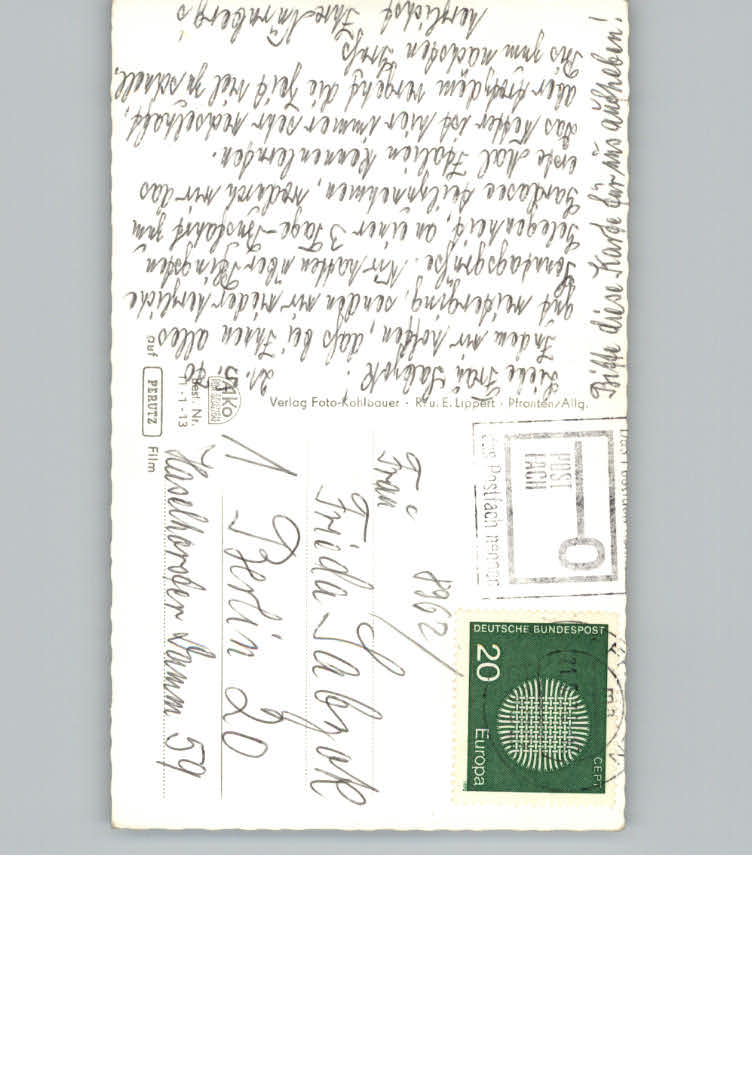 21.5.70
Liebe Frau Sabrok!
Indem wir hoffen, daß bei Ihnen alles
gut weiterging, senden wir wieder herzliche
Sonntagsgrüße. Wir hatten über Pfingsten
Gelegenheit, an einer 3 Tage-Busfahrt zum
Gardasee teilzunehmen, wodurch wir das
erste Mal Italien kennenlernten.
Das Wetter ist hier immer sehr wechselhaft,
aber trotzdem vergeht die Zeit viel zu schnell.
Bis zum nächsten Gruß
herzlichst Ihre Nürnberg's
Bitte diese Karte für uns aufheben!
Verlag Foto-Kohlbauer · R. u. E. Lippert · Pfronten/Allg.
Best. Nr.
11-1-13
auf PERUTZ Film
POST
FACH
DEUTSCHE BUNDESPOST
20
CEPT
Europa
8962
Frau
Frida Sabrok
1 Berlin 20
Haselhorster Damm 59